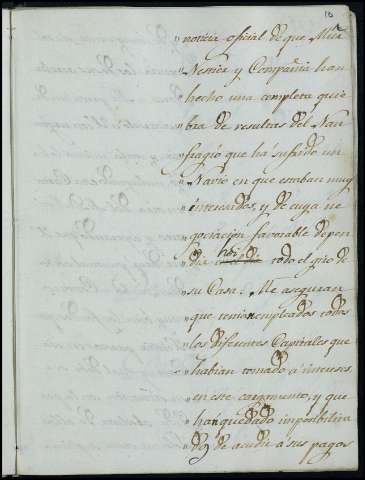 10
noticia oficial de que Mur
" Nestier y Compañia han
" hecho una completa quie
" bra de resultas del Nau
" fragio que há sufrido un
" Navio en que estaban muy
" interesados, y de cuya ne
" gociacion favorable depen
" dia hoi dia todo el giro de
" su Casa. Me aseguran
" que tenian empleados todos
" los diferentes Capitales que
" habian tomado á interes
" en este cargamento, y que
" han quedado imposibilita
" dos de acudir á sus pagos